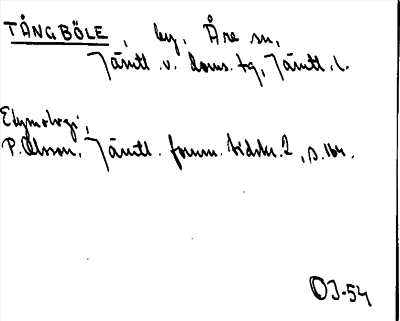 TÅNGBÖLE, by, Åre sn,
Jämtl. v. doms. tg, Jämtl. l.
Etymologi;
P. Olsson, Jämtl. fornm. tidskr. 2, s. 164.
OJ-54